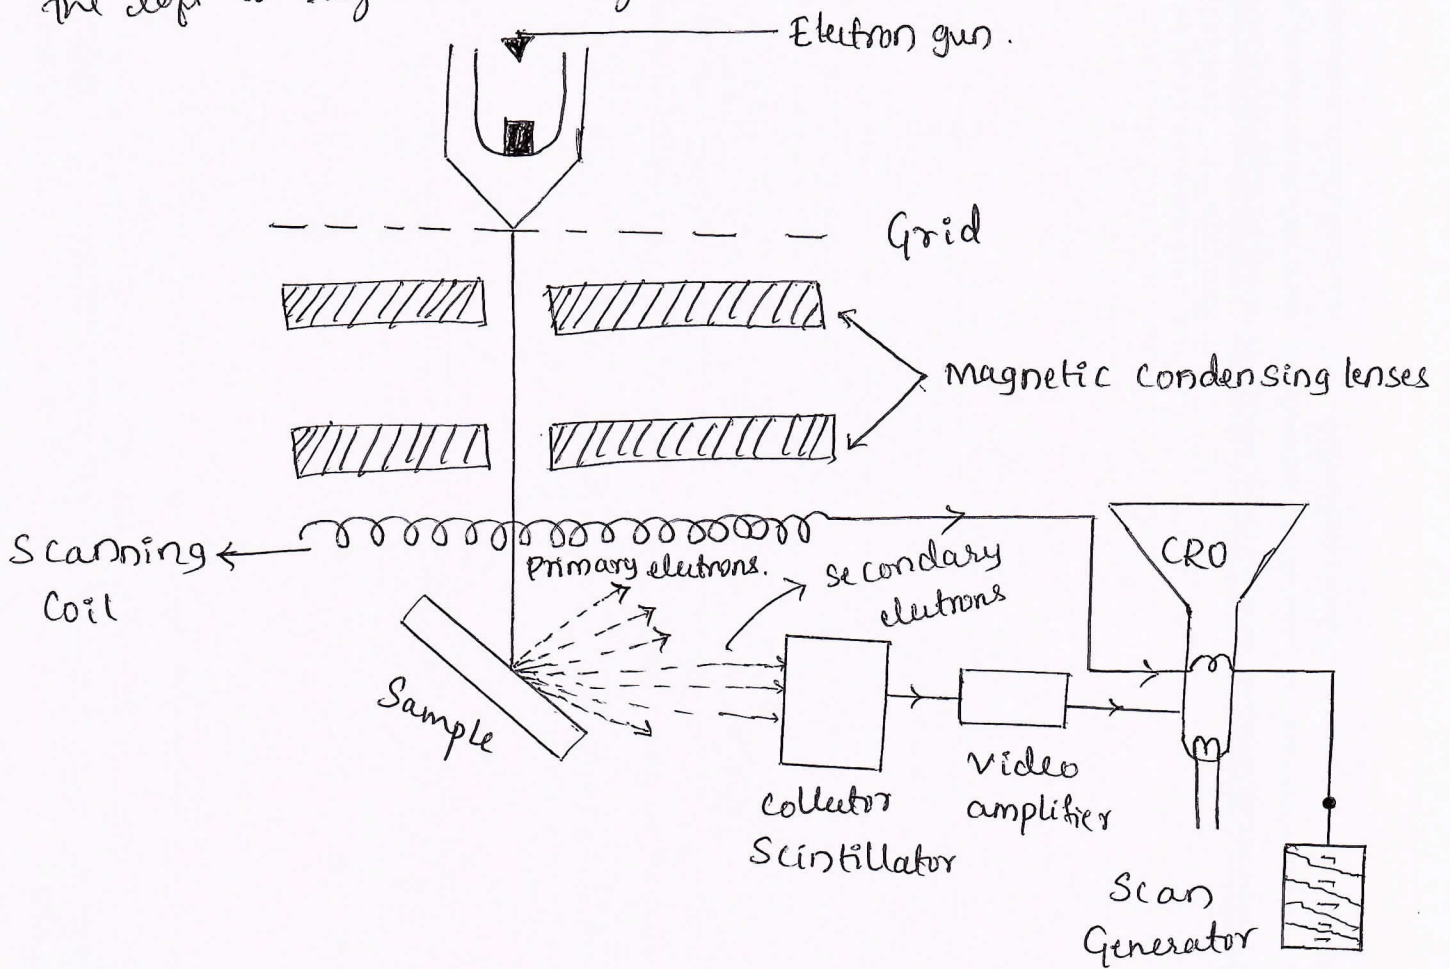 the
Electron gun.
Grid
Magnetic Condensing lenses
Scanning
Coil
Primary elutrons.
Secondary
elutrons
CRO
Sample
Collector
Scintillator
Video
amplifier
Scan
Generator